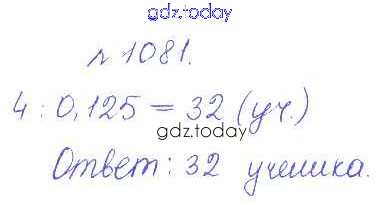 gdz.today
№ 1081.
4 : 0,125 = 32 (уч.)
gdz.today
Ответ: 32 ученика.